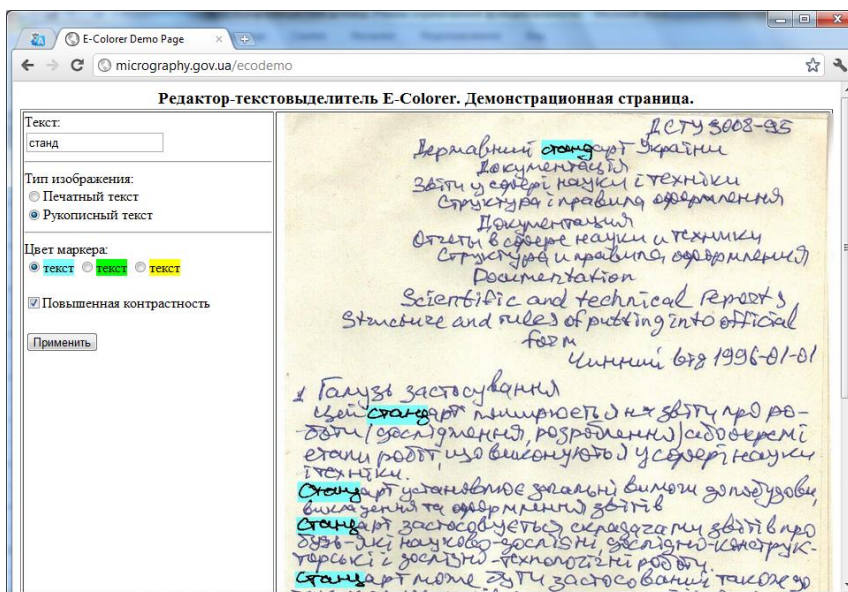 E-Colorer Demo Page
micrography.gov.ua/ecodemo
Редактор-текстовыделитель E-Colorer. Демонстрационная страница.
Текст:
станд
Тип изображения:
Печатный текст
Рукописный текст
Цвет маркера:
текст текст текст
Повышенная контрастность
Применить
ДСТУ 3008-95
Державний стандарт України
Документація
Звіти у сфері науки і техніки
Структура і правила оформлення
Документация
Отчеты в сфере науки и техники
Структура и правила оформления
Documentation
Scientific and technical reports
Structure and rules of putting into official
form
Чинний від 1996-01-01
1 Галузь застосування
Цей стандарт поширюється на звіти про ро-
боти (дослідження, розроблення) або окремі
етапи робіт, що виконуються у сфері науки
і техніки.
Стандарт установлює загальні вимоги до побудови,
викладення та оформлення звітів
Стандарт застосовується складачами звітів про
будь-які науково-дослідні, дослідно-конструк-
торські і дослідно-технологічні роботи.
Стандарт може бути застосований також до